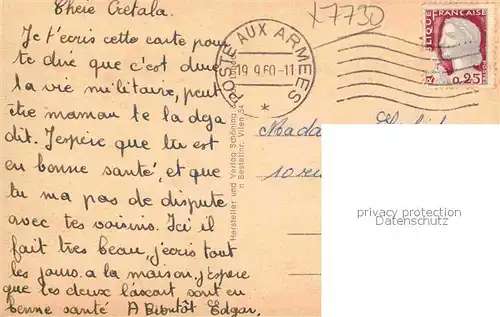 Chère Crétala.
Je t'ecris cette carte pour
te dire que c'est dure
la vie militaire, peut
être maman te la deja
dit. J'espère que tu est
en bonne santé, et que
tu m'a pas de dispute
avec tes voisins. Ici il
fait très beau, j'ecris tout
les jours a la maison, j'espère
que les deux sont en
bonne santé A Bientôt Edgar.
X7730
POSTE AUX ARMEES
19 9.60 - 11
*
REPUBLIQUE FRANÇAISE
0,25
Mada
10 rue
Hersteller und Verlag Schöning &
n Bestellnr. Villen 54
privacy protection
Datenschutz